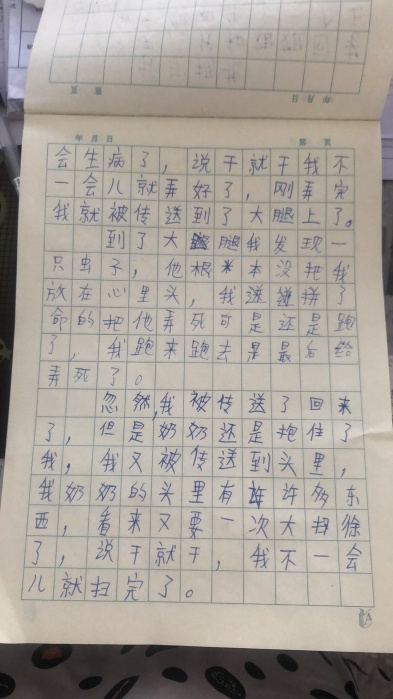 年 月 日
第 页
会生病了，说干就干我不
一会儿就弄好了，刚弄完
我就被传送到了大腿上了。
到了大腿我发现一
只虫子，他根本没把我
放在心里头，我拼了
命的把他弄死可是还是跑
了，我跑来跑去是最后给
弄死了。
忽然，我被传送了回来
了，但是奶奶还是抱住了
我，我又被传送到头里，
我奶奶的头里有许多东
西，看来又要一次大扫徐
了，说干就干，我不一会
儿就扫完了。